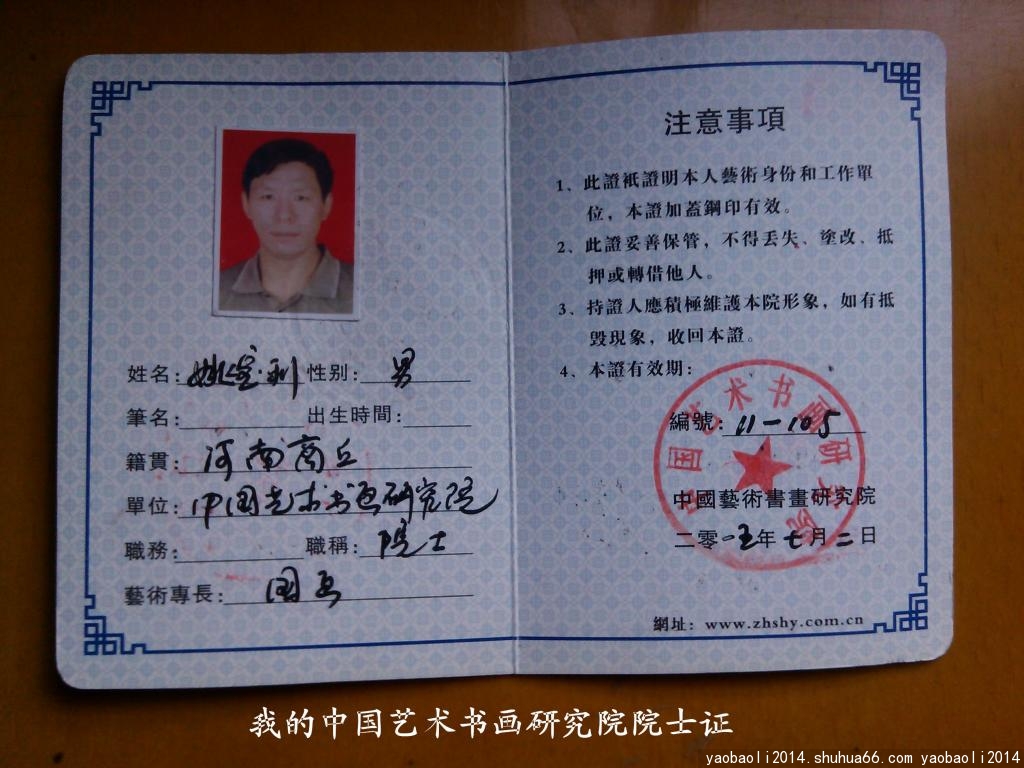 姓名：姚宝利 性别：男
筆名： 出生時間：
籍貫：河南商丘
單位：中国艺术书画研究院
職務： 職稱：院士
藝術專長：国画
注意事項
1、此證祇證明本人藝術身份和工作單
位，本證加蓋鋼印有效。
2、此證妥善保管，不得丢失、塗改、抵
押或轉借他人。
3、持證人應積極維護本院形象，如有抵
毁現象，收回本證。
4、本證有效期：
中国艺术书画研究院
編號：11-105
中國藝術書畫研究院
二零一五年七月二日
網址：www.zhshy.com.cn
我的中国艺术书画研究院院士证
yaobaoli2014.shuhua66.com yaobaoli2014